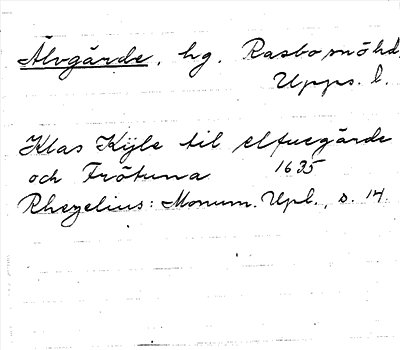 Älvgärde, hg. Rasbo sn öhd.
Upps. l.
Klas Kyle til elfuegärde
och Frötuna 1635
Rhezelius: Monum. Upl., s. 14.